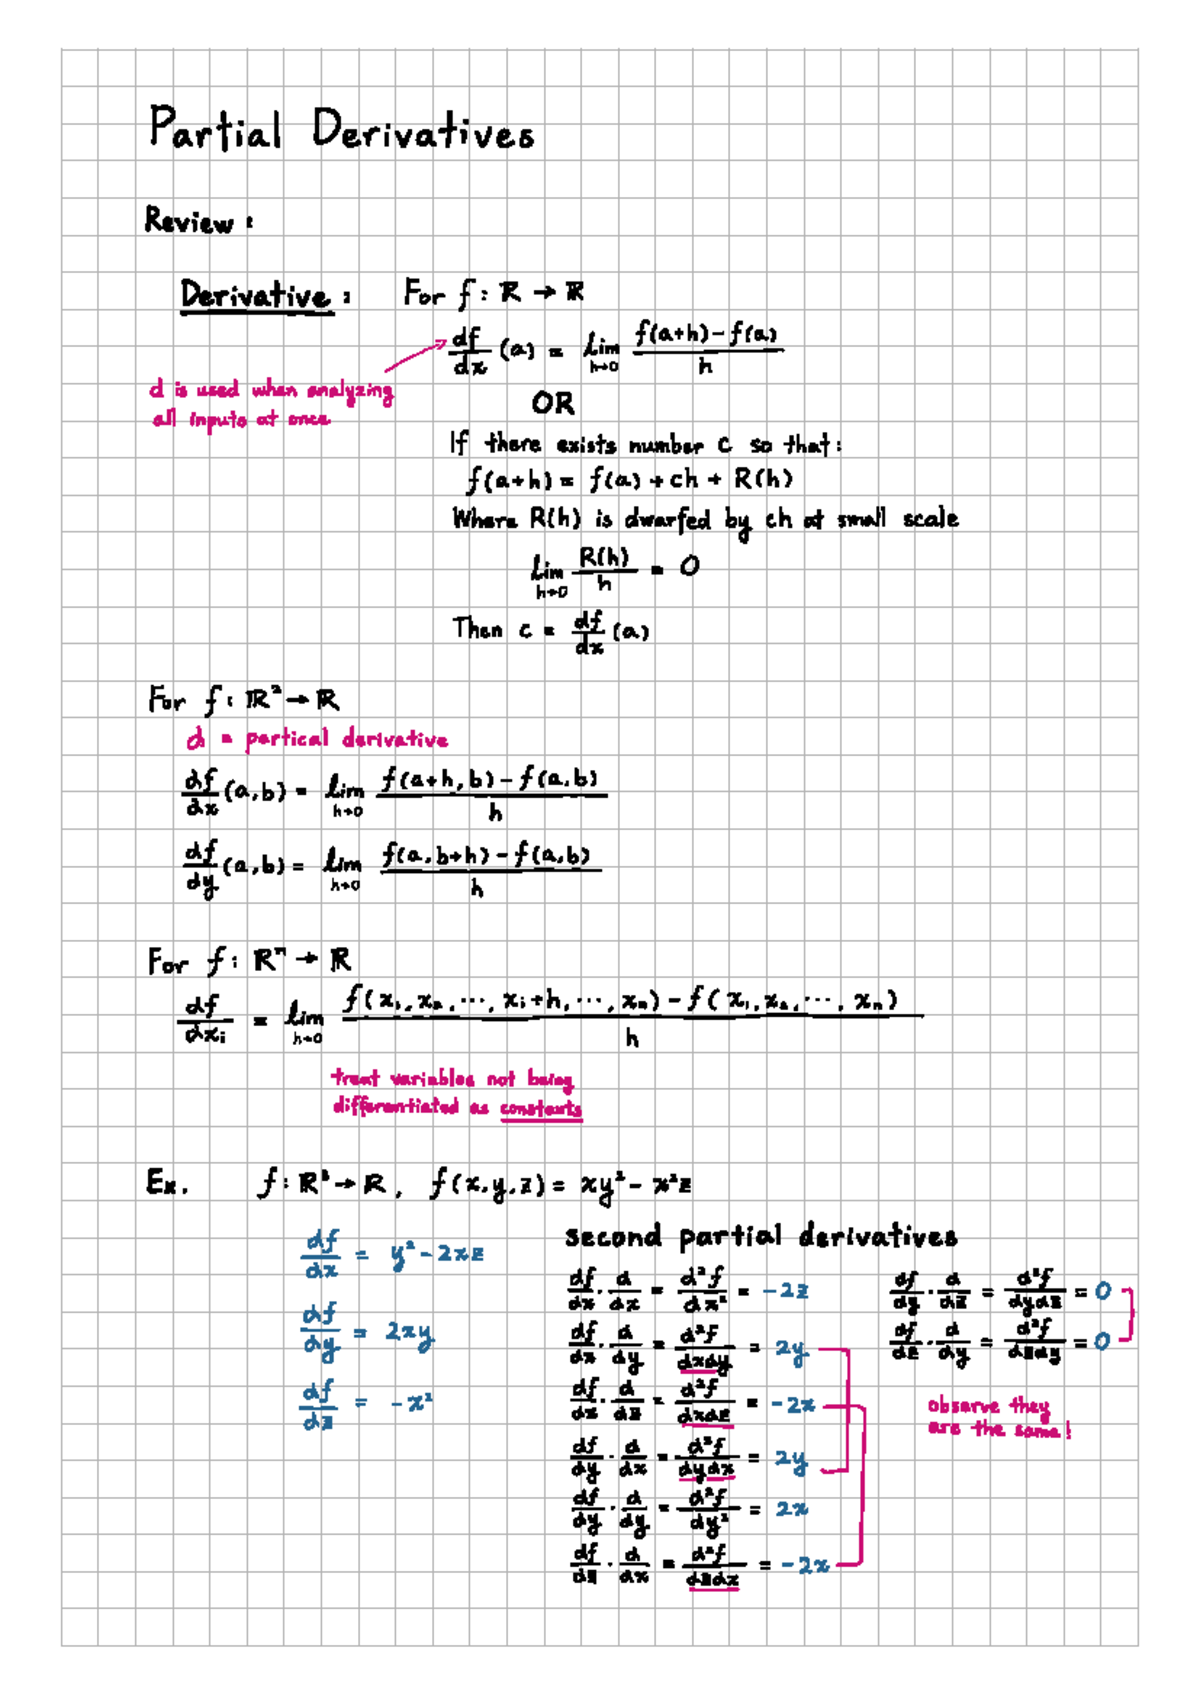 Partial Derivatives
Review:
Derivative: For f: ℝ → ℝ
df/dx (a) = lim h→0 (f(a+h) - f(a))/h
d is used when analyzing
all inputs at once
OR
If there exists number c so that:
f(a+h) = f(a) + ch + R(h)
Where R(h) is dwarfed by ch at small scale
lim h→0 R(h)/h = 0
Then c = df/dx (a)
For f: ℝ² → ℝ
∂ = partical derivative
∂f/∂x (a,b) = lim h→0 (f(a+h, b) - f(a,b))/h
∂f/∂y (a,b) = lim h→0 (f(a, b+h) - f(a,b))/h
For f: ℝⁿ → ℝ
∂f/∂xᵢ = lim h→0 (f(x₁, x₂, ..., xᵢ+h, ..., xₙ) - f(x₁, x₂, ..., xₙ))/h
treat variables not being
differentiated as constants
Ex. f: ℝ³ → ℝ, f(x,y,z) = xy² - x²z
∂f/∂x = y² - 2xz
∂f/∂y = 2xy
∂f/∂z = -x²
second partial derivatives
∂f/∂x · ∂/∂x = ∂²f/∂x² = -2z
∂f/∂x · ∂/∂y = ∂²f/∂x∂y = 2y
∂f/∂x · ∂/∂z = ∂²f/∂x∂z = -2x
∂f/∂y · ∂/∂x = ∂²f/∂y∂x = 2y
∂f/∂y · ∂/∂y = ∂²f/∂y² = 2x
∂f/∂z · ∂/∂x = ∂²f/∂z∂x = -2x
∂f/∂y · ∂/∂z = ∂²f/∂y∂z = 0
∂f/∂z · ∂/∂y = ∂²f/∂z∂y = 0
observe they
are the same!